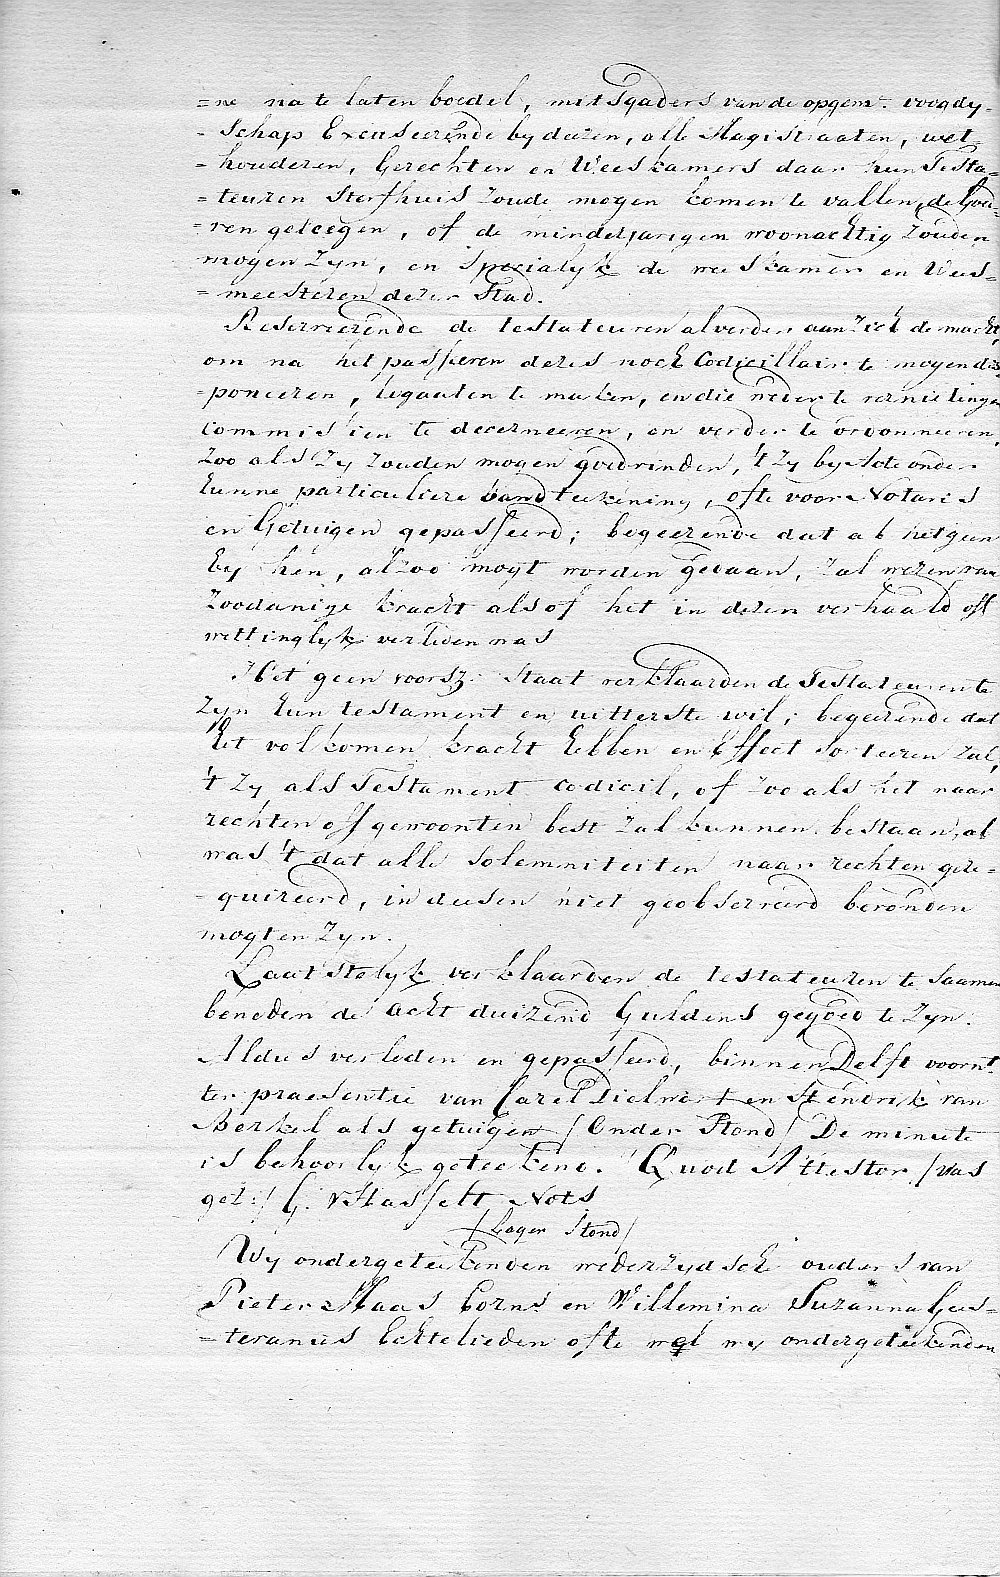 =ne na te laten boedel, mitsgaders van de opgem: voogdy-
-schap Excuseerende by dezen, alle Magistraaten, wet-
-houderen, Gerechten en Weeskamers daar hun Testa=
=teuren Sterfhuis zoude mogen komen te vallen, de Goe-
=ren geleegen, of de minderjarigen woonachtig zouden
mogen zyn, en specialyk de weeskamer en Wees=
=meesteren dezer Stad.
Reserveerende de testateuren alverder aan zich de macht,
om na het passeeren dezes noch Codicillair te mogen dis
-poneeren, legaaten te maken, en die weder te vernietingen
Commissien te decerneeren, en verder te ordonneeren,
zoo als zy zouden mogen goedvinden, 't zy by Acte onder
hunne particuliere handteekening, ofte voor Notaris
en Getuigen gepasseerd; begeerende dat al hetgeen
by hen, alzoo mogt worden gedaan, zal wezen van
zoodanige kracht als of het in dezen verhaald oft
wettinglyk verleden was
Het geen voorsz: staat verklaarden de Testateuren te
zyn hun testament en uitterste wil; begeerende dat
het volkomen kracht hebben en Effect sorteeren zal,
't zy als Testament codicil, of zoo als het naar
rechten off gewoonten best zal kunnen bestaan, al
was 't dat alle solemniteiten naar rechten gere=
-quireerd, in deesen niet geobserveerd bevonden
mogten zyn.
Laatstelyk verklaarden de testateuren te saamen
beneden de acht duizend Guldens gegoed te zyn.
Aldus verleden en gepasseerd, binnen Delft voornt.
ter praesentie van Carel Dielwert en Hendrik van
Berkel als getuigen /Onder Stond/ De minute
is behoorlyk geteekend. Quod Attestor /was
get:/ G. v Hasselt Nots
/Lager Stond/
Wy ondergeteekenden wederzydsche ouders van
Pieter Haas Corns. en Willemina Suzanna Gees-
=teranus Echtelieden ofte wel wy ondergeteekenden